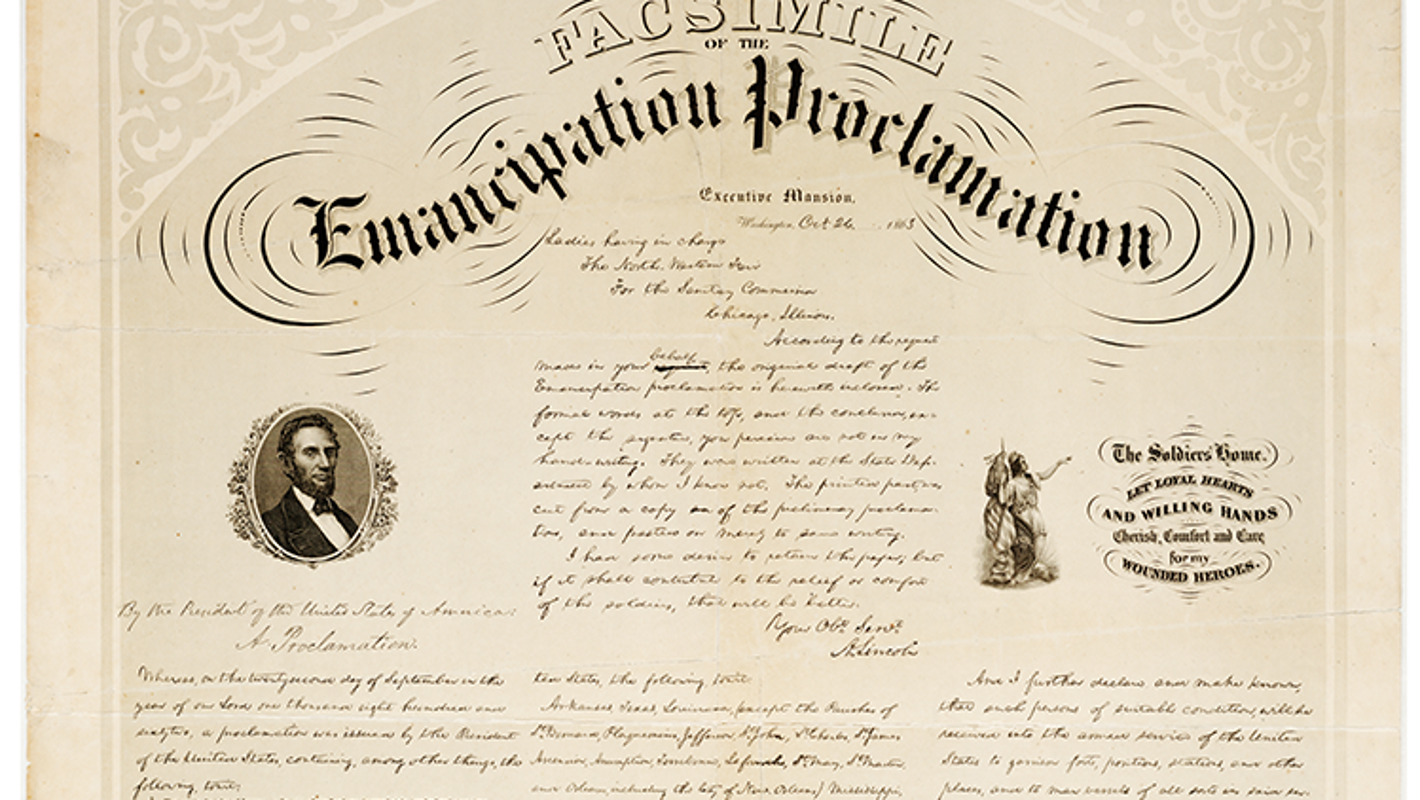 FACSIMILE
OF THE
Emancipation Proclamation
Executive Mansion,
Washington, Oct. 26, 1863
Ladies having in charge
The North-Western Fair
For the Sanitary Commission
Chicago, Illinois.
According to the request
made in your behalf, the original draft of the
Emancipation proclamation is herewith inclosed. The
formal words at the top, and the conclusion, ex-
cept the signature, you perceive are not in my
hand-writing. They were written at the State Dep-
artment by whom I know not. The printed part was
cut from a copy of the preliminary proclama-
tion, and pasted on merely to save writing.
I had some desire to retain the paper; but
if it shall contribute to the relief or comfort
of the soldiers, that will be better.
Your Obt. Servt.
A. Lincoln
The Soldiers' Home.
LET LOYAL HEARTS
AND WILLING HANDS
Cherish, Comfort and Care
for my
WOUNDED HEROES.
By the President of the United States of America:
A Proclamation.
Whereas, on the twentysecond day of September in the
year of our Lord one thousand eight hundred and
sixtytwo, a proclamation was issued by the President
of the United States, containing, among other things, the
following, towit:
ted States, the following, towit:
Arkansas, Texas, Louisiana, (except the Parishes of
St. Bernard, Plaquemines, Jefferson, St. John, St. Charles, St. James
Ascension, Assumption, Terrebonne, Lafourche, St. Mary, St. Martin,
and Orleans, including the City of New Orleans) Mississippi,
And I further declare and make known,
that such persons of suitable condition, will be
received into the armed service of the United
States to garrison forts, positions, stations, and other
places, and to man vessels of all sorts in said ser-